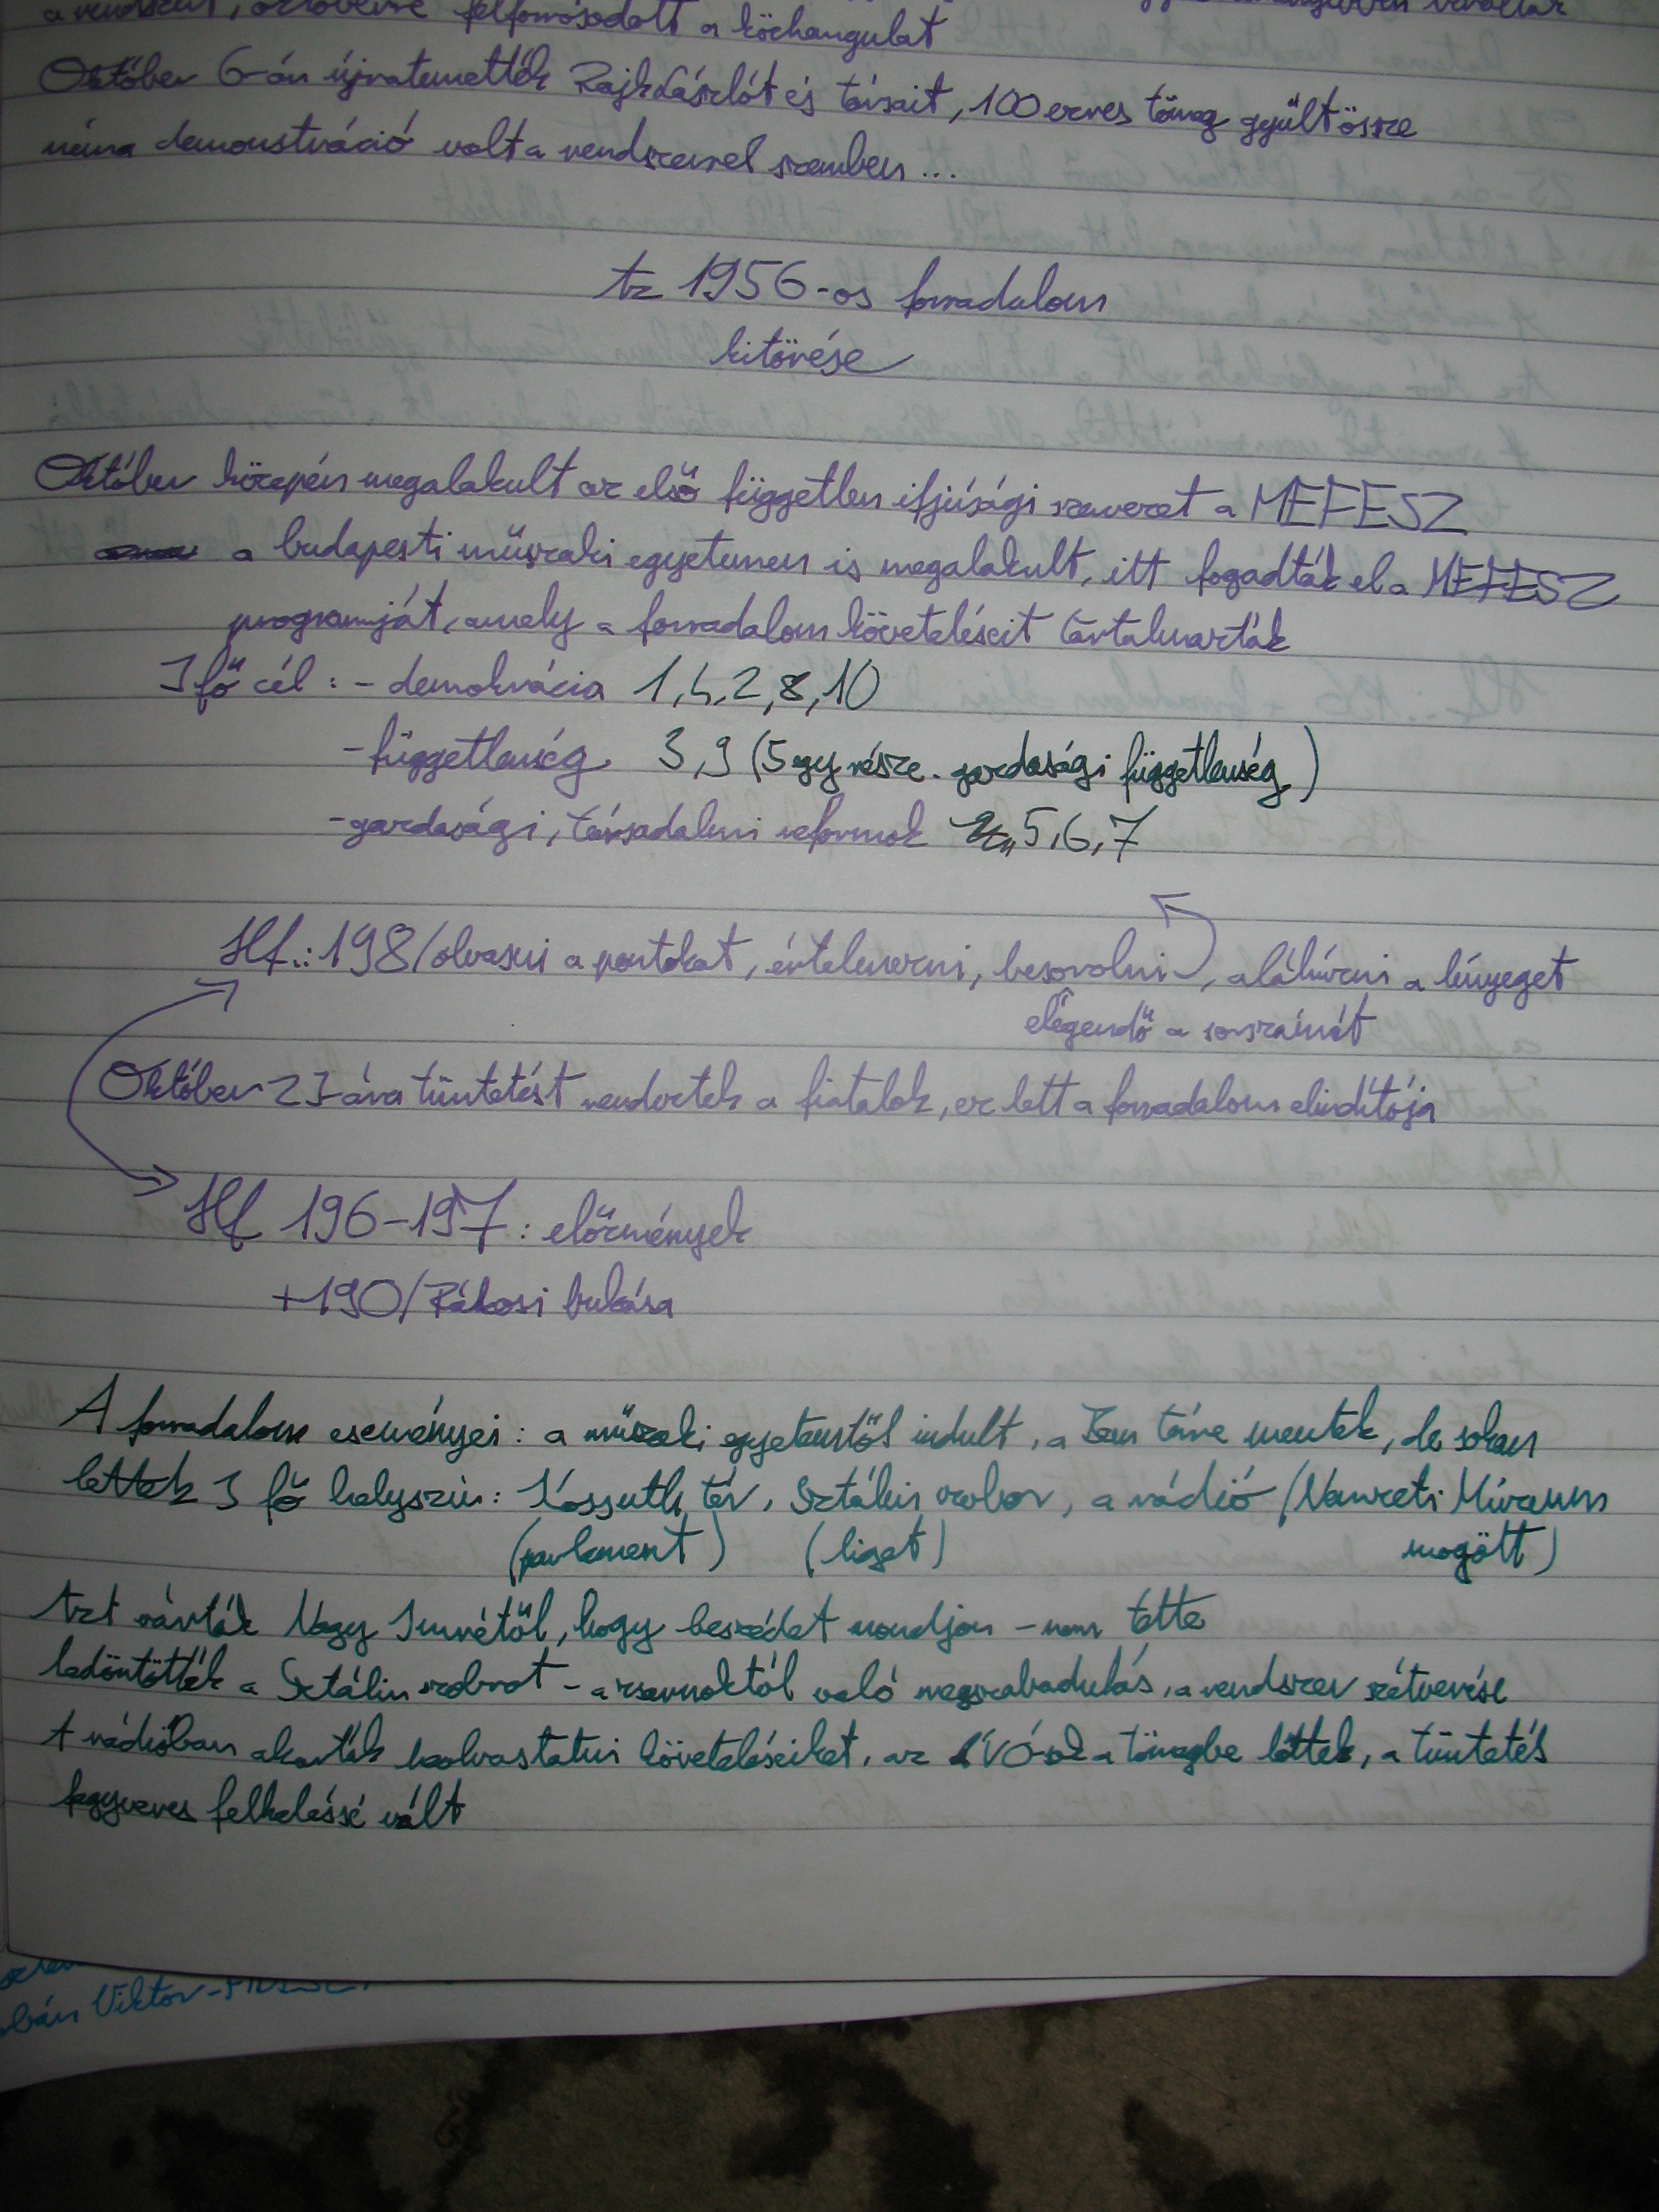 a rendszert, októberre felforrósodott a közhangulat
Október 6-án újratemették Rajk Lászlót és társait, 100 ezres tömeg gyűlt össze
néma demonstráció volt a rendszerrel szemben...
Az 1956-os forradalom
kitörése
Október közepén megalakult az első független ifjúsági szervezet a MEFESZ
a budapesti műszaki egyetemen is megalakult, itt fogadták el a MEFESZ
programját, amely a forradalom követeléseit tartalmazták
3 fő cél: - demokrácia 1,4,2,8,10
- függetlenség 3,9 (5 egy része. gazdasági függetlenség)
- gazdasági, társadalmi reformok 5,6,7
Hf.: 198/olvasni a pontokat, értelmezni, besorolni, aláhúzni a lényeget
elégendő a sorszámát
Október 23-ára tüntetést rendeztek a fiatalok, ez lett a forradalom elindítója
Hf 196-197: előzmények
+190/Rákosi bukása
A forradalom eseményei: a műszaki egyetemtől indult, a Bem térre mentek, de sokan
lettek 3 fő helyszín: Kossuth tér, Sztálin szobor, a rádió (Nemzeti Múzeum
(parlement) (liget) mögött)
Azt várták Nagy Imrétől, hogy beszédet mondjon - nem tette
ledöntötték a Sztálin szobrot - a zsarnoktól való megszabadulás, a rendszer szétverése
A rádióban akarták beolvastatni követeléseiket, az ÁVÓ-sok a tömegbe lőttek, a tüntetés
fegyveres felkeléssé vált
bán Viktor -